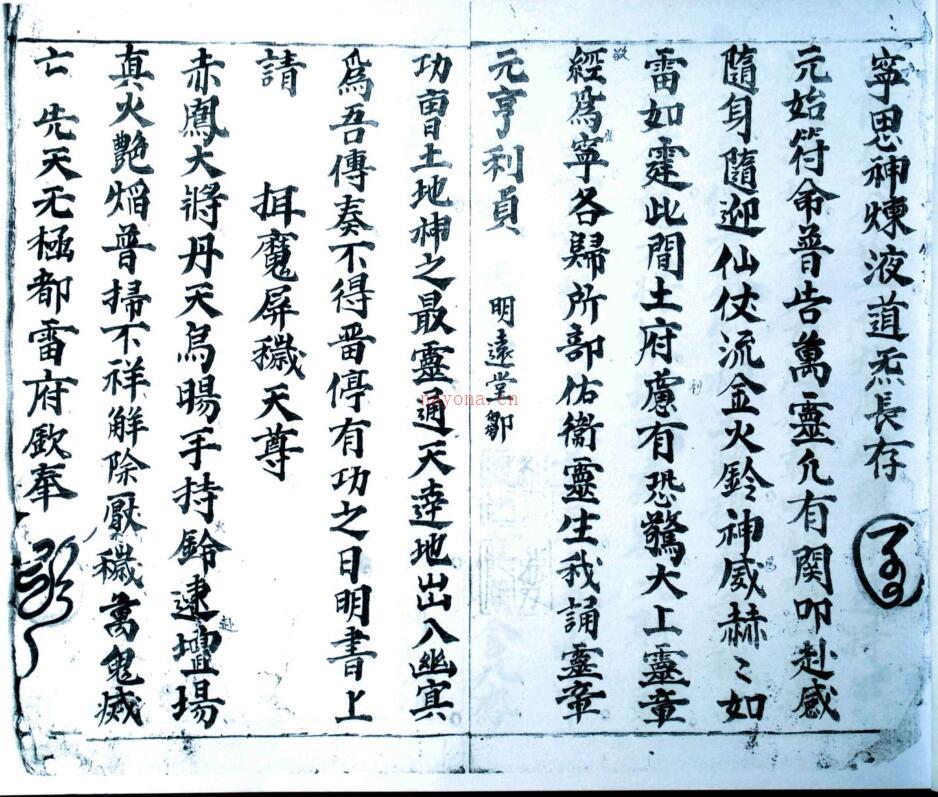 寧思神煉液道炁長存
元始符命普告萬靈凢有関叩赴感
隨身隨迎仙仗流金火鈴神威赫〻如
雷如霆此間土府慮有恐驚大上靈章
經爲寧各歸所部佑衛靈生我誦靈章
元亨利貞 明遠堂鄒
功曺土地神之最靈通天達地出入幽冥
爲吾傳奏不得畱停有功之日明書上
請 揖魔屏穢天尊
赤鳳大將丹天烏暘手持鈴速壇場
真火艶焰普掃不祥解除厭穢萬鬼威
亡 先天无極都雷府欽奉
火
赴
nayona.cn